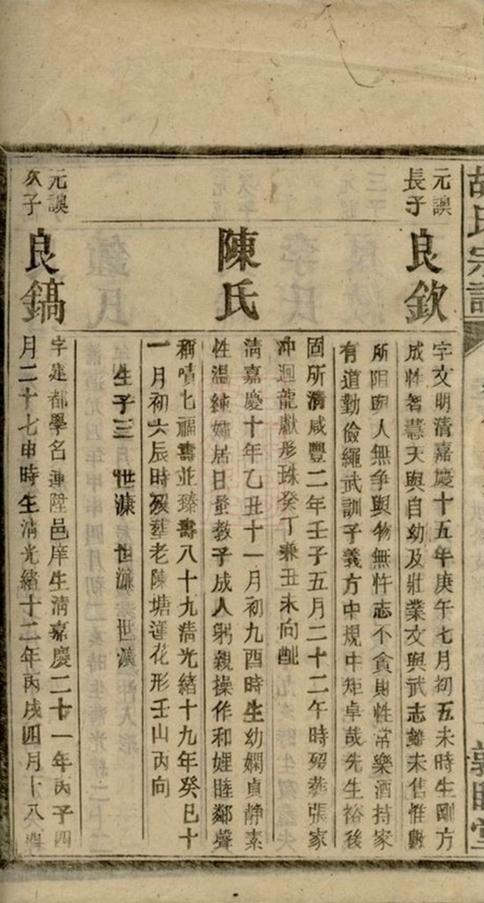 胡氏宗譜
元謨
長子
良欽
字文明清嘉慶十五年庚午七月初五未時生剛方
成性智慧天與自幼及壯業文與武志雖未售惟數
所阻與人無爭與物無忤志不貪財性常樂酒持家
有道勤儉繩武訓子義方中規中矩卓哉先生裕後
固所清咸豐二年壬子五月二十二午時歿葬張家
冲迴龍獻形珠癸丁兼丑未向配
陳氏
清嘉慶十年乙丑十一月初九酉時生幼嫻貞靜素
性溫純孀居日量教子成人躬親操作和娌睦鄰聲
稱嘖七福壽並臻壽八十九清光緒十九年癸巳十
一月初六辰時歿葬老陳塘蓮花形壬山丙向
生子三 世濂 世濂 世漢
元謨
次子
良鎬
字建都學名連陞邑庠生清嘉慶二十一年丙子四
月二十七申時生清光緒十二年丙戌四月十八
敦睦堂